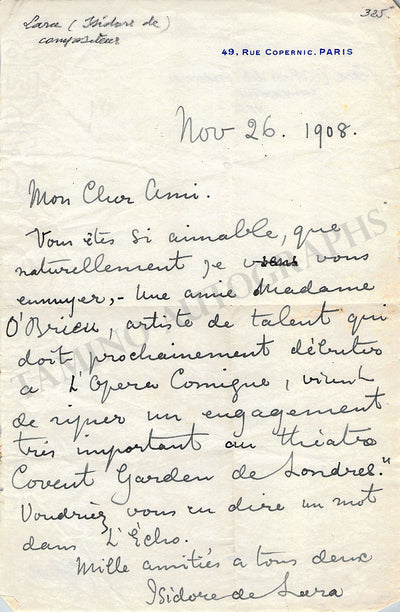 Lara (Isidore de)
compositeur
325
49, RUE COPERNIC. PARIS
Nov 26. 1908.
Mon Cher Ami.
Vous êtes si aimable, que
naturellement je viens vous
ennuyer, - Une amie Madame
O'Brien, artiste de talent qui
doit prochainement débuter
a L'Opera Comique, vient
de signer un engagement
très important au théatre
Covent Garden de Londres."
Voudriez vous en dire un mot
dans L'Écho.
Mille amitiés a tous deux
Isidore de Lara
TAMINO AUTOGRAPHS